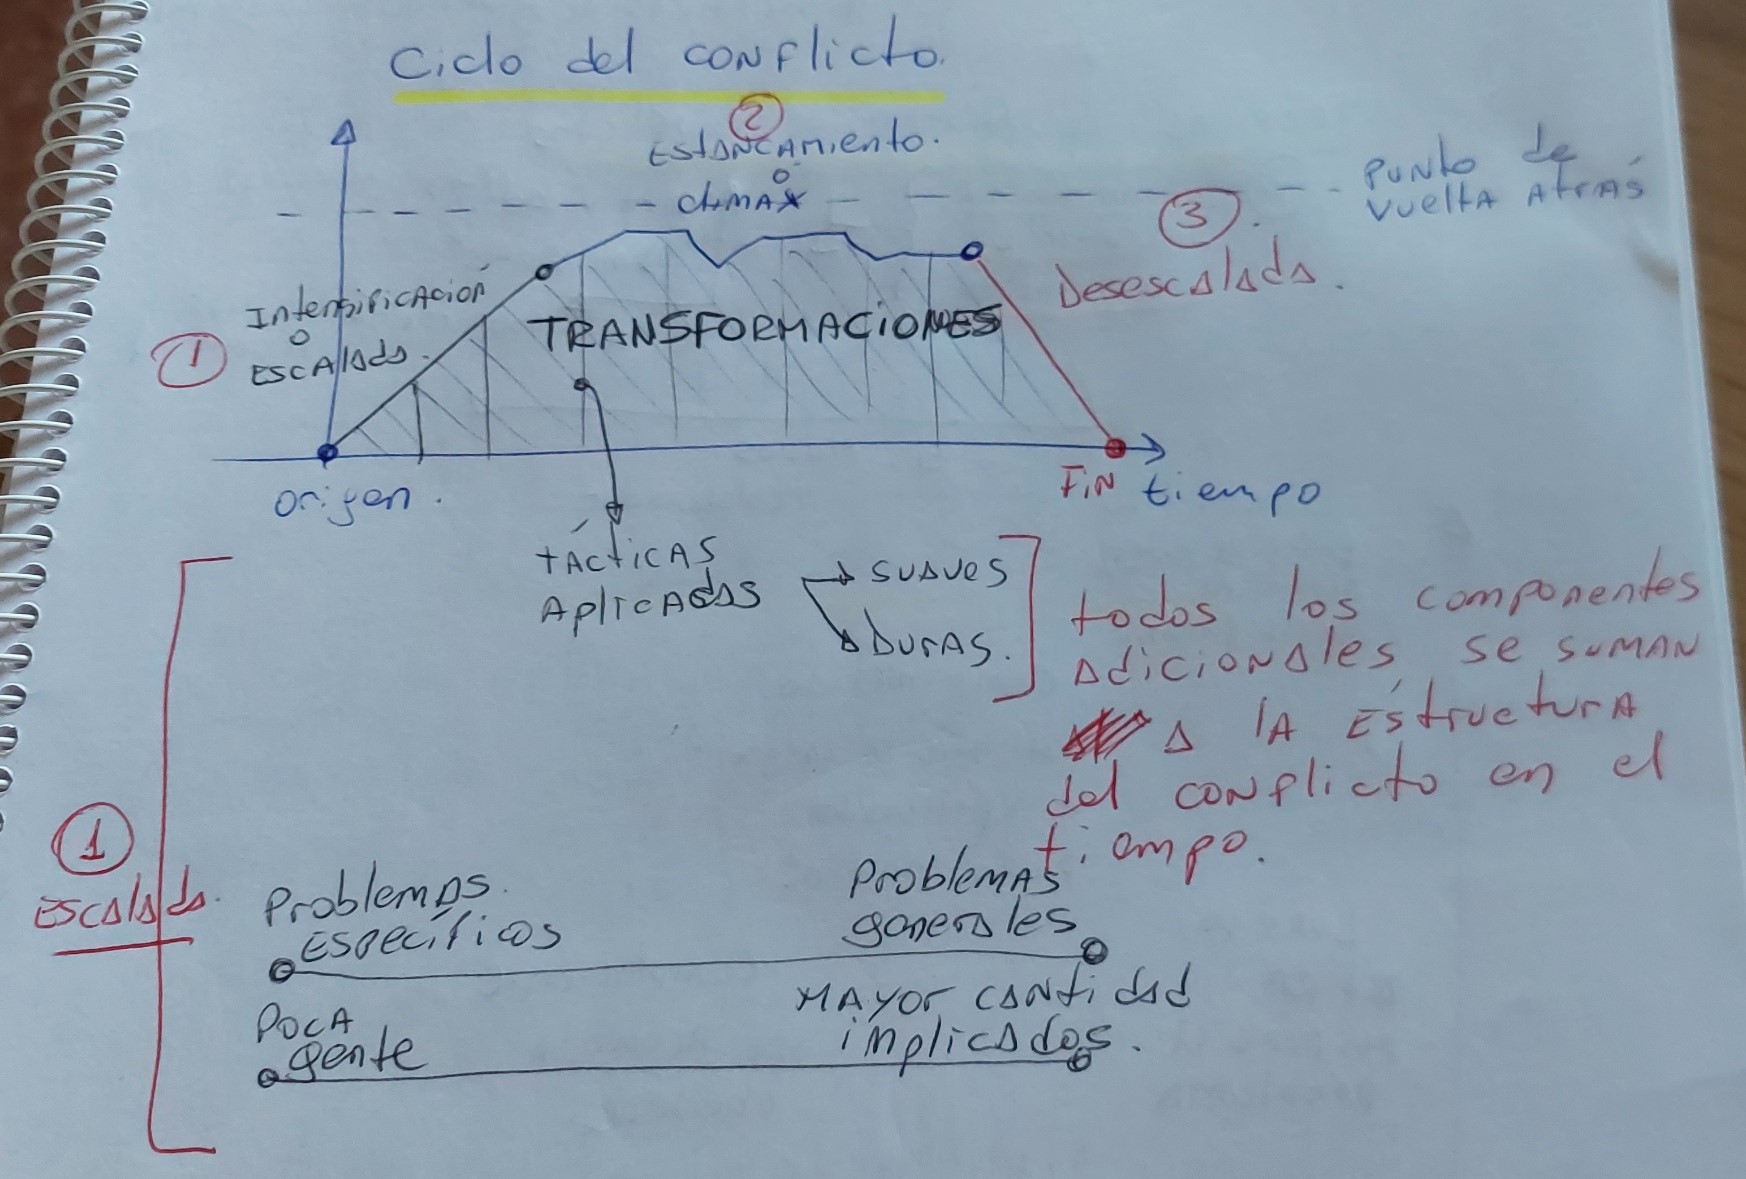 Ciclo del conflicto.
2
Estancamiento.
o
climax
Punto de
vuelta atrás
3.
Desescalada.
Intensificación
o
escalada.
1
TRANSFORMACIONES
origen.
FIN
tiempo
tácticas
Aplicadas
suaves
Duras.
todos los componentes
adicionales se suman
a la estructura
del conflicto en el
tiempo.
1
Escalada.
Problemas
específicos
Problemas
generales
Poca
gente
Mayor cantidad
implicados.